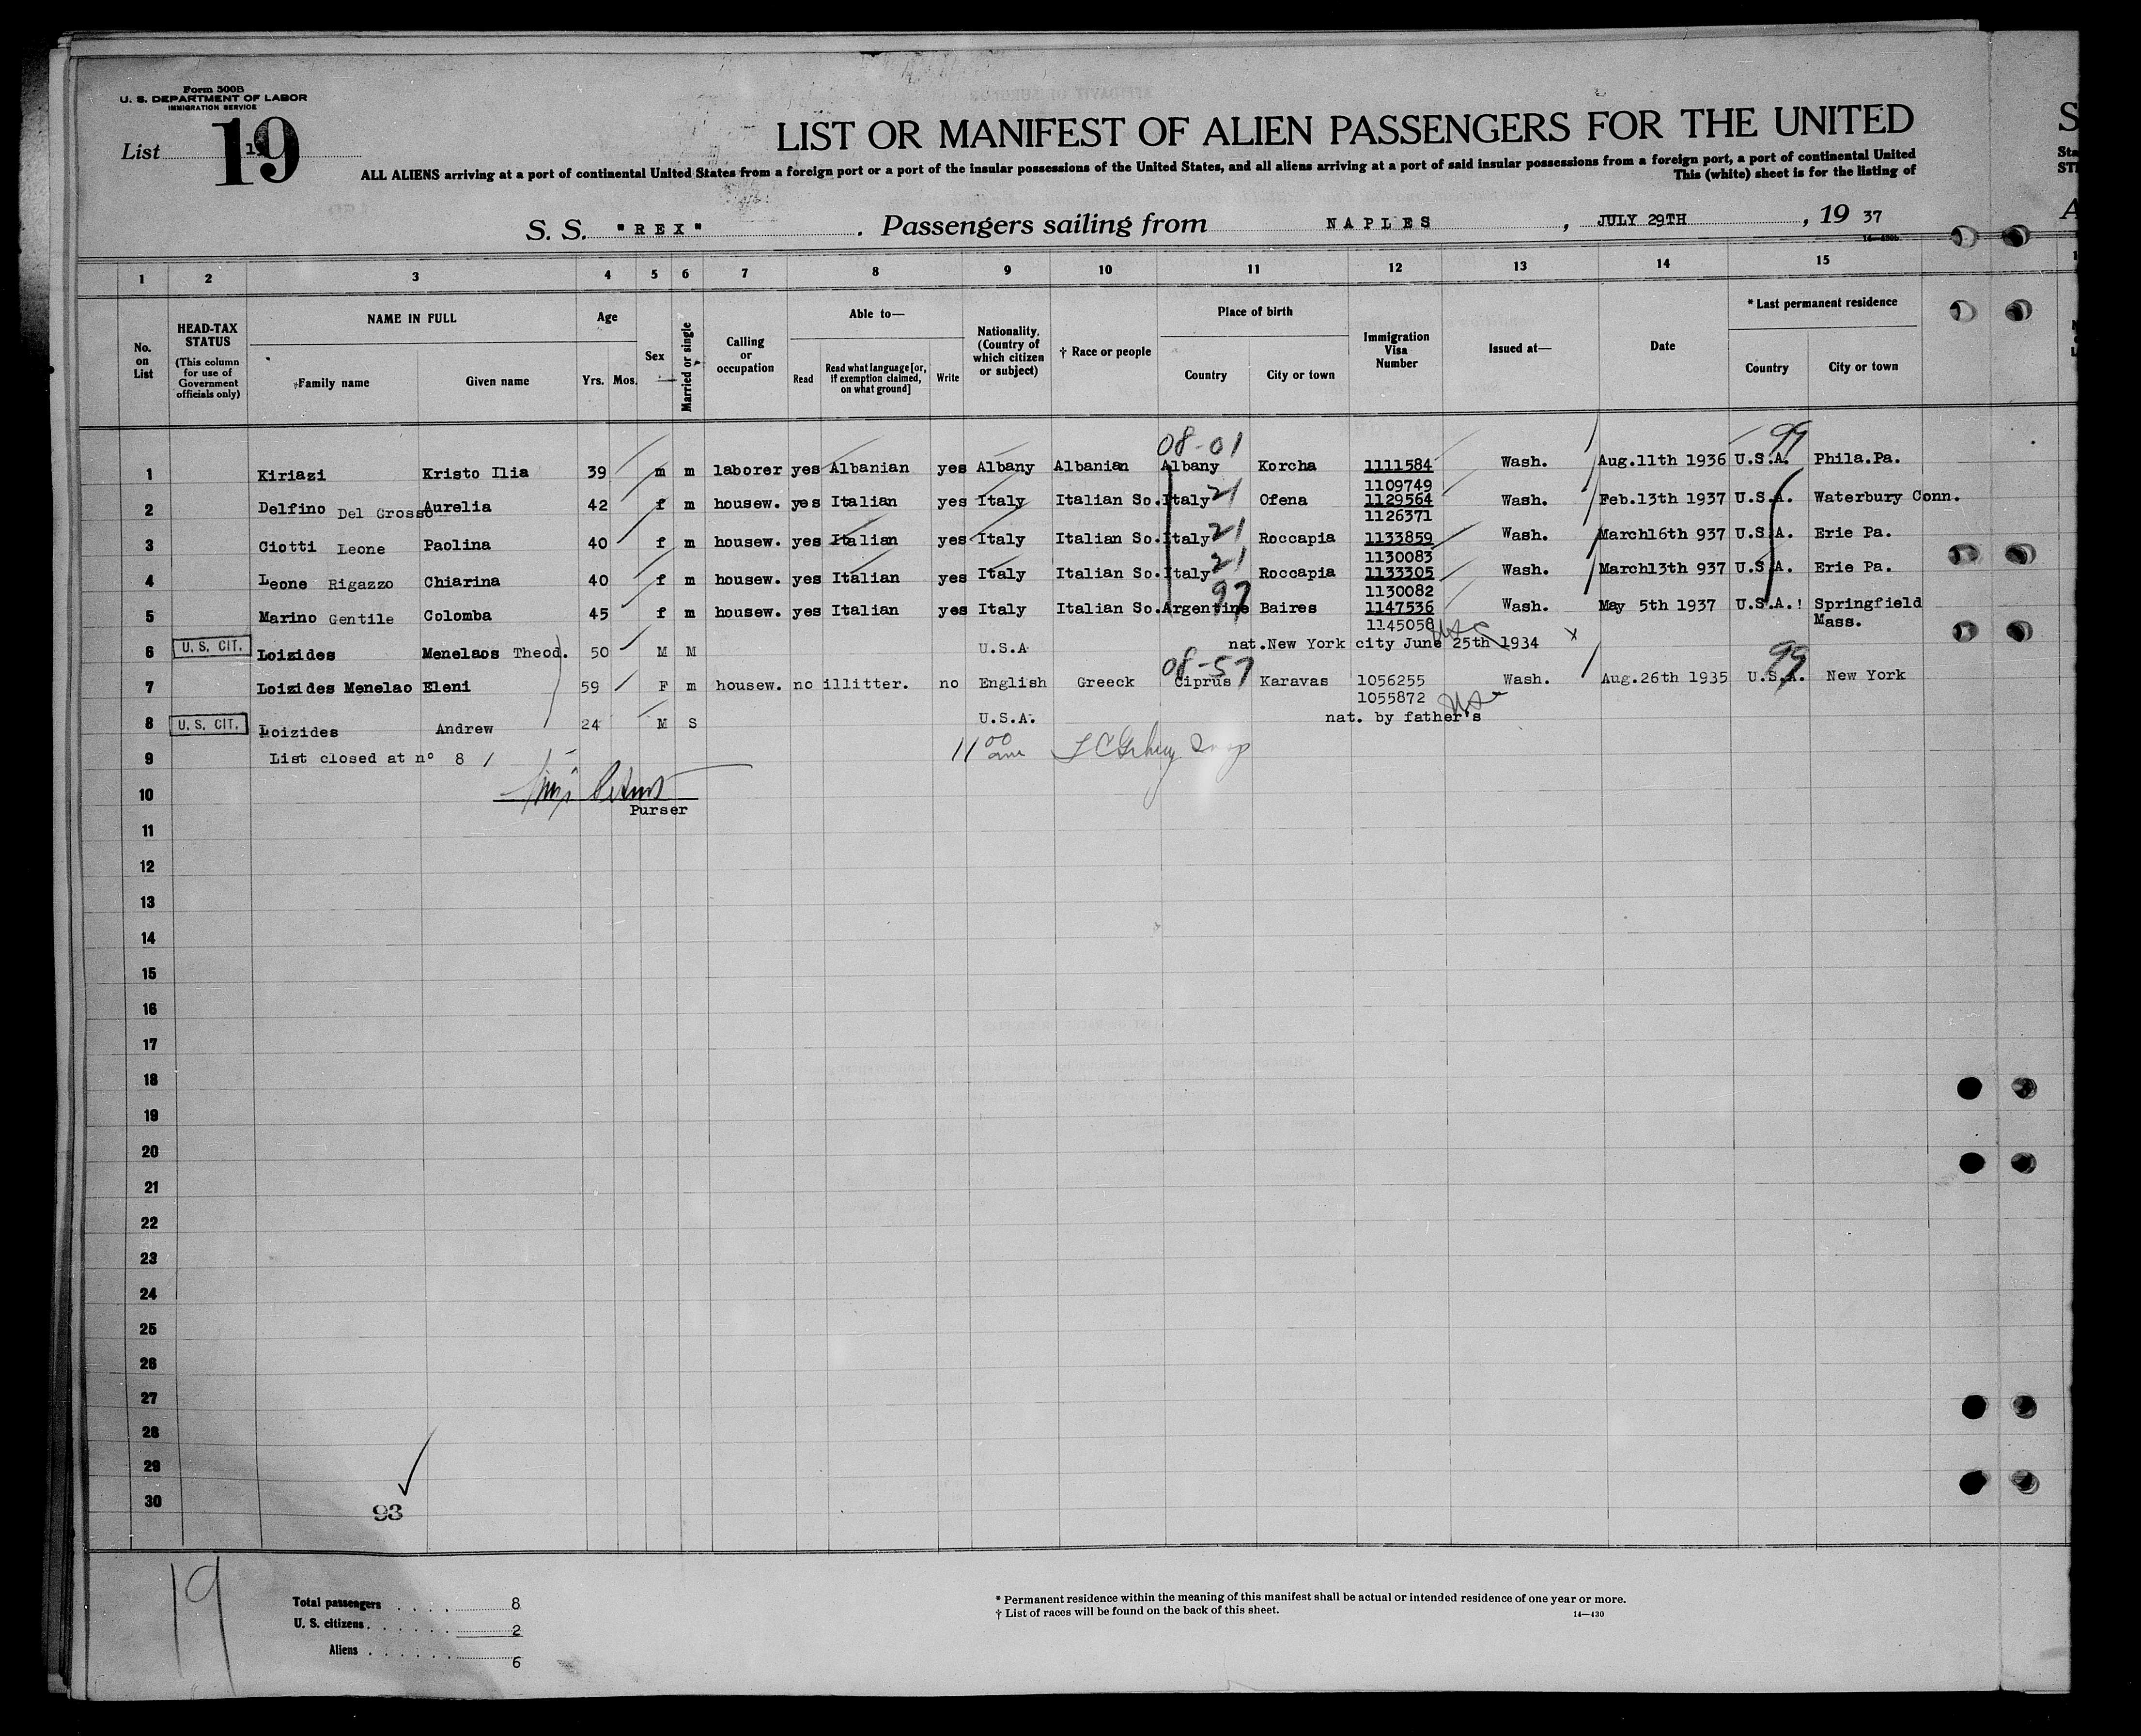 Form 500B
U. S. DEPARTMENT OF LABOR
IMMIGRATION SERVICE
List 19
LIST OR MANIFEST OF ALIEN PASSENGERS FOR THE UNITED
ALL ALIENS arriving at a port of continental United States from a foreign port or a port of the insular possessions of the United States, and all aliens arriving at a port of said insular possessions from a foreign port, a port of continental United
This (white) sheet is for the listing of
S. S. "REX". Passengers sailing from NAPLES, JULY 29TH, 19 37
14—430b
1 2 3 4 5 6 7 8 9 10 11 12 13 14 15
No. on List
HEAD-TAX STATUS (This column for use of Government officials only)
NAME IN FULL
Family name Given name
Age
Yrs. Mos.
Sex
Married or single
Calling or occupation
Able to—
Read Read what language [or, if exemption claimed, on what ground] Write
Nationality. (Country of which citizen or subject)
† Race or people
Place of birth
Country City or town
Immigration Visa Number
Issued at—
Date
* Last permanent residence
Country City or town
08-01 99
1 Kiriazi Kristo Ilia 39 m m laborer yes Albanian yes Albany Albanian Albany Korcha 1111584 Wash. Aug.11th 1936 U.S.A. Phila.Pa.
1109749
2 Delfino Del Grosso Aurelia 42 f m housew. yes Italian yes Italy Italian So. Italy 21 Ofena 1129564 Wash. Feb.13th 1937 U.S.A. Waterbury Conn.
1126371
3 Ciotti Leone Paolina 40 f m housew. yes Italian yes Italy Italian So. Italy 21 Roccapia 1133859 Wash. March16th 937 U.S.A. Erie Pa.
1130083
4 Leone Rigazzo Chiarina 40 f m housew. yes Italian yes Italy Italian So. Italy 21 Roccapia 1133305 Wash. March13th 937 U.S.A. Erie Pa.
1130082
97
5 Marino Gentile Colomba 45 f m housew. yes Italian yes Italy Italian So. Argentine Baires 1147536 Wash. May 5th 1937 U.S.A.! Springfield Mass.
1145058
6 U. S. CIT. Loizides Menelaos Theod. 50 M M U.S.A nat.New York city June 25th 1934 x
08-57 99
7 Loizides Menelao Eleni 59 F m housew. no illitter. no English Greeck Ciprus Karavas 1056255 Wash. Aug.26th 1935 U.S.A. New York
1055872
8 U. S. CIT. Loizides Andrew 24 M S U.S.A. nat. by father's
9 List closed at n° 8 / 11 00 am
10
Purser
11
12
13
14
15
16
17
18
19
20
21
22
23
24
25
26
27
28
29
30
93
19
Total passengers 8
U. S. citizens 2
Aliens 6
* Permanent residence within the meaning of this manifest shall be actual or intended residence of one year or more.
† List of races will be found on the back of this sheet.
14—430